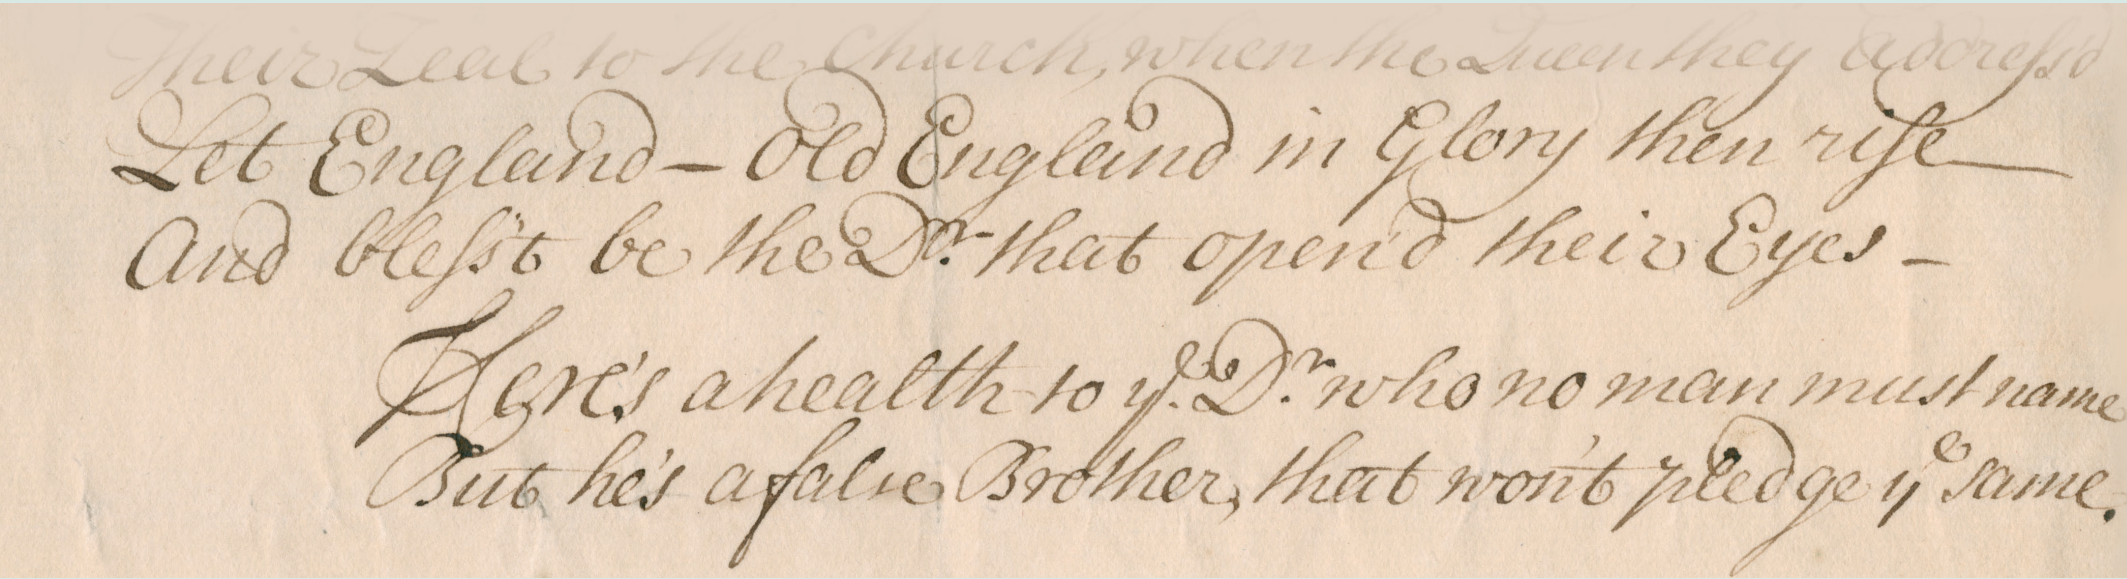 Their Zeal to the Church, when the Queen they addreſs'd
Let England – Old England in Glory then riſe
And bleſs't be the Dr. that open'd their Eyes –
Here's a health to ye. Dr. who no man must name
But he's a false Brother, that won't pledge ye same.